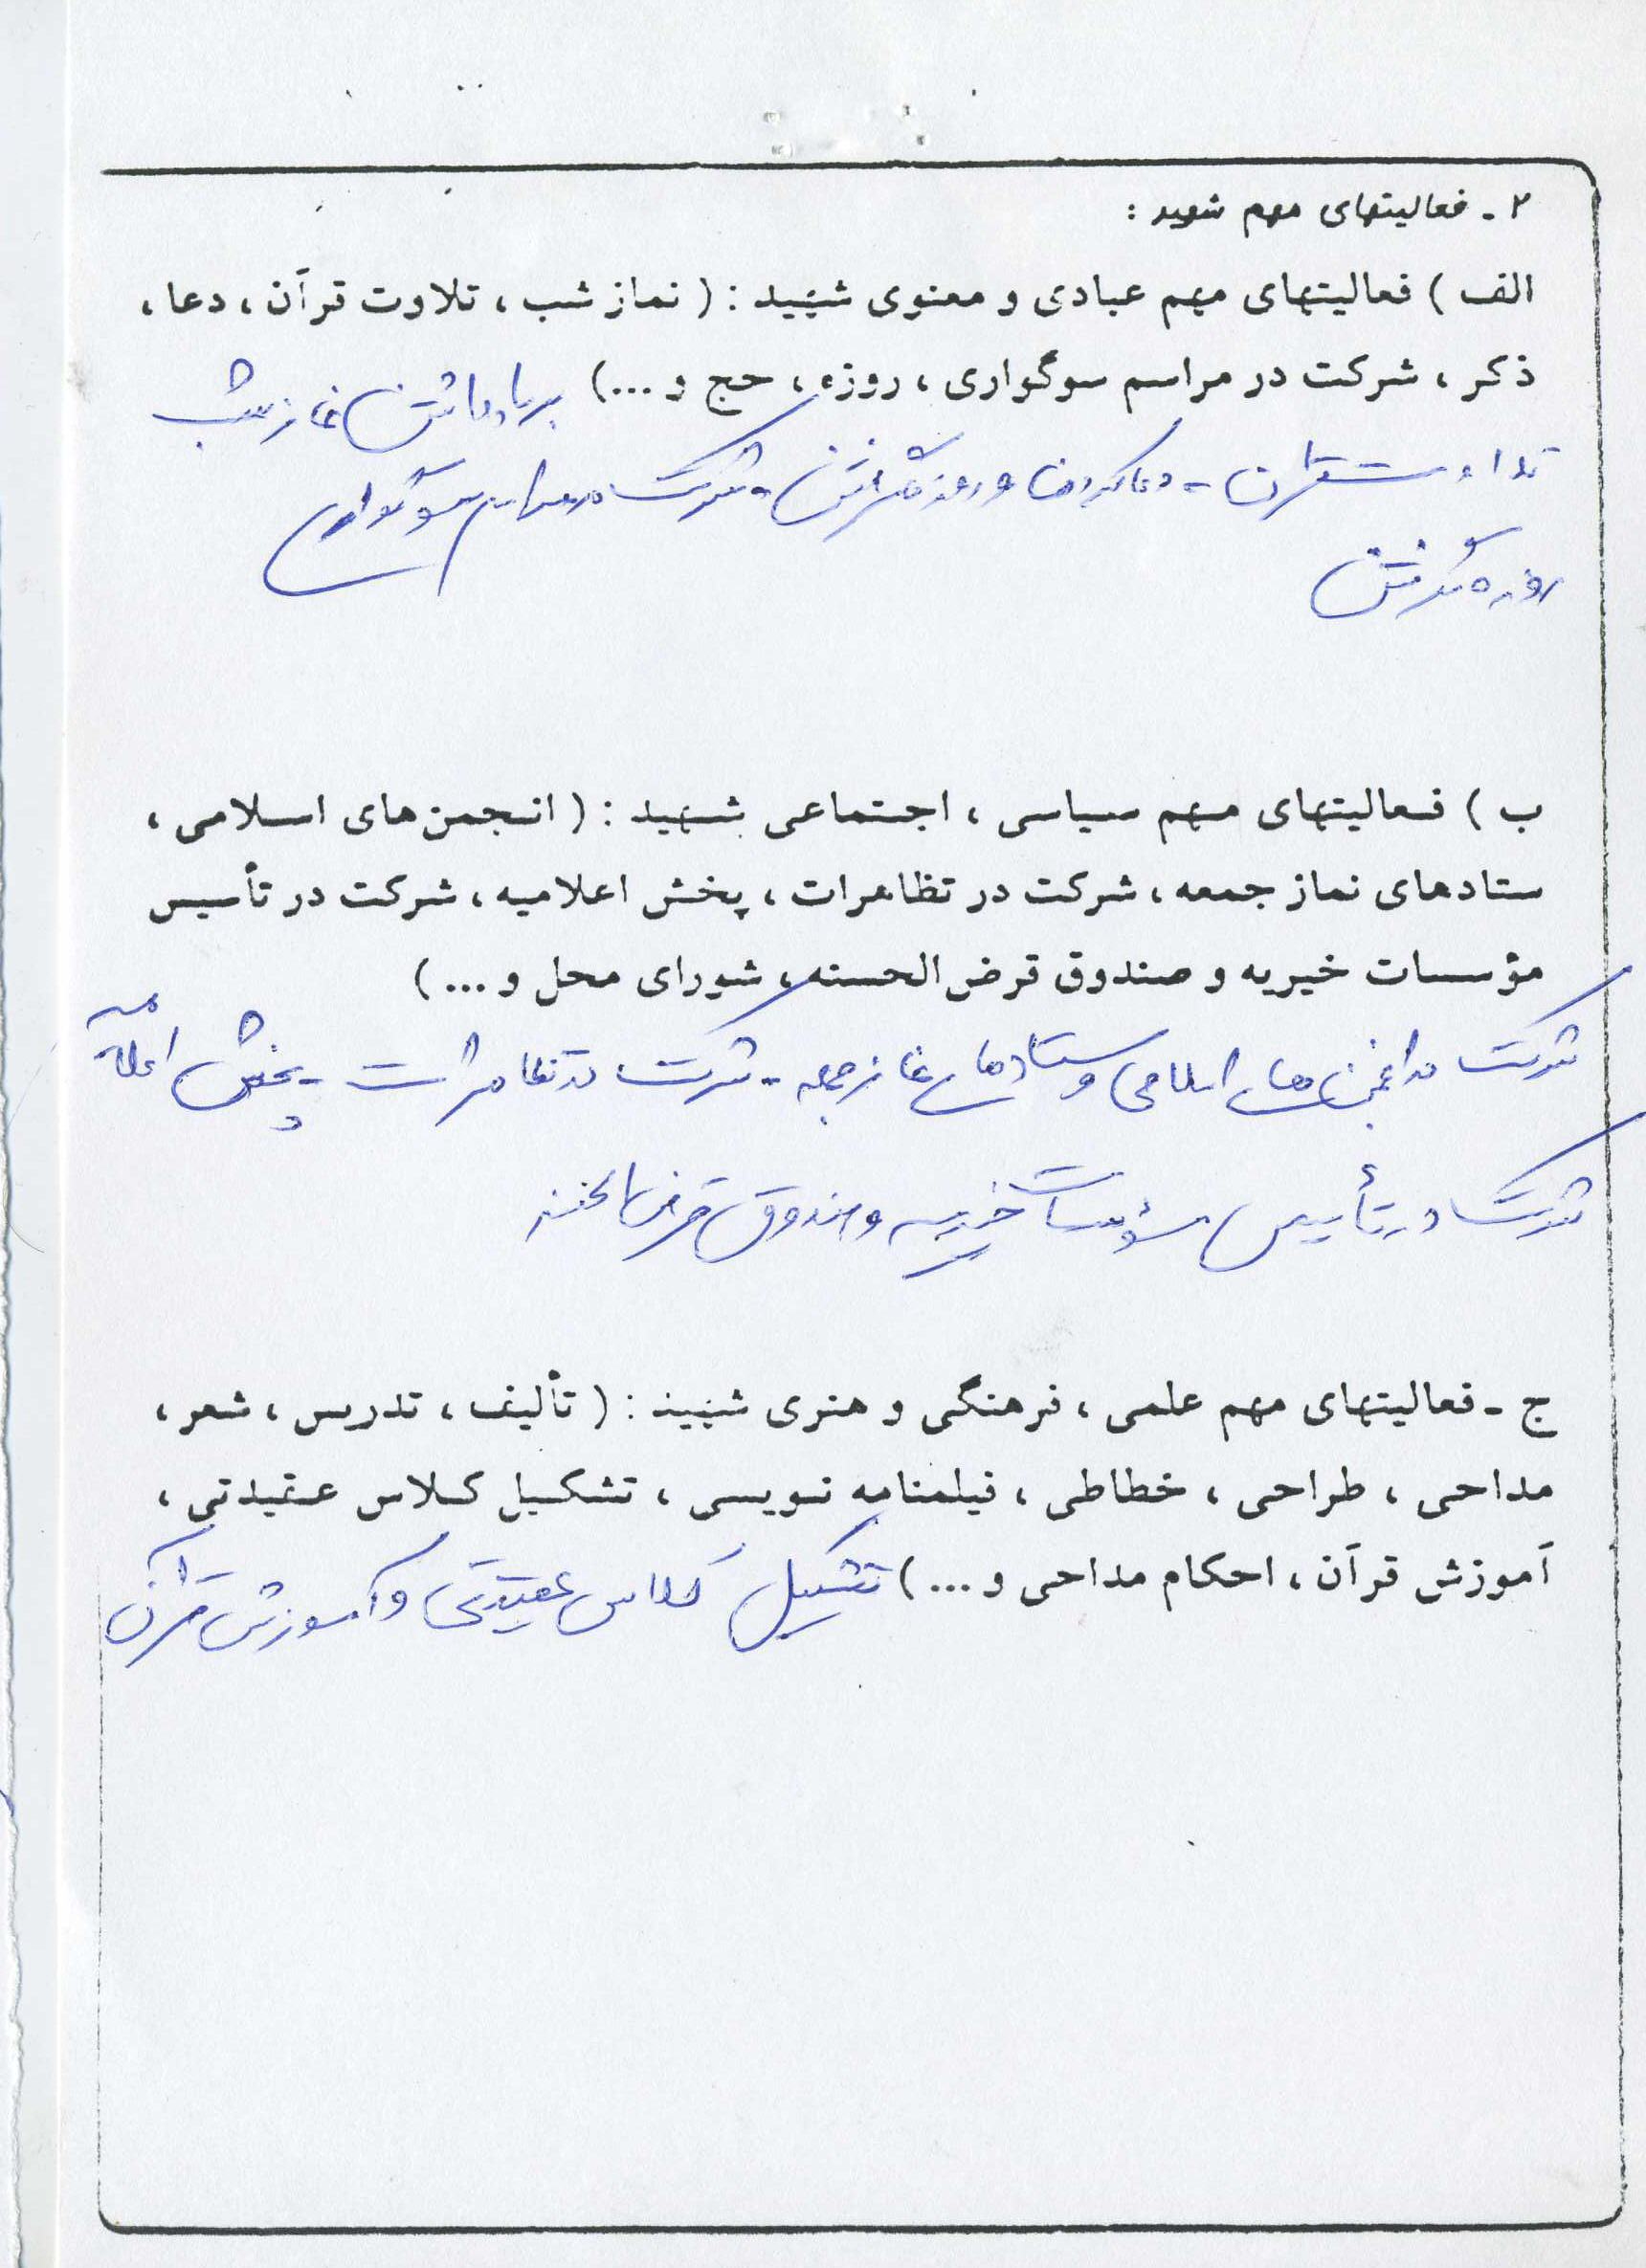 ۲ - فعالیتهای مهم شهید :
الف ) فعالیتهای مهم عبادی و معنوی شهید : ( نماز شب ، تلاوت قرآن ، دعا ،
ذکر ، شرکت در مراسم سوگواری ، روزه ، حج و ... ) برپاداشتن نماز شب
تلاوت قرآن - دعا کردن و روزه گرفتن - شرکت در مراسم سوگواری
روزه گرفتن
ب ) فعالیتهای مهم سیاسی ، اجتماعی شهید : ( انجمن های اسلامی ،
ستادهای نماز جمعه ، شرکت در تظاهرات ، پخش اعلامیه ، شرکت در تأسیس
مؤسسات خیریه و صندوق قرض الحسنه ، شورای محل و ... )
شرکت در انجمن های اسلامی و ستادهای نماز جمعه - شرکت در تظاهرات - پخش اعلامیه
شرکت در تأسیس مؤسسات خیریه و صندوق قرض الحسنه
ج - فعالیتهای مهم علمی ، فرهنگی و هنری شهید : ( تألیف ، تدریس ، شعر ،
مداحی ، طراحی ، خطاطی ، فیلمنامه نویسی ، تشکیل کلاس عقیدتی ،
آموزش قرآن ، احکام مداحی و ... ) تشکیل کلاس عقیدتی و آموزش قرآن